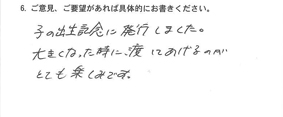 6. ご意見、ご要望があれば具体的にお書きください。
子の出生記念に発行しました。
大きくなった時に、渡してあげるのが
とても楽しみです。